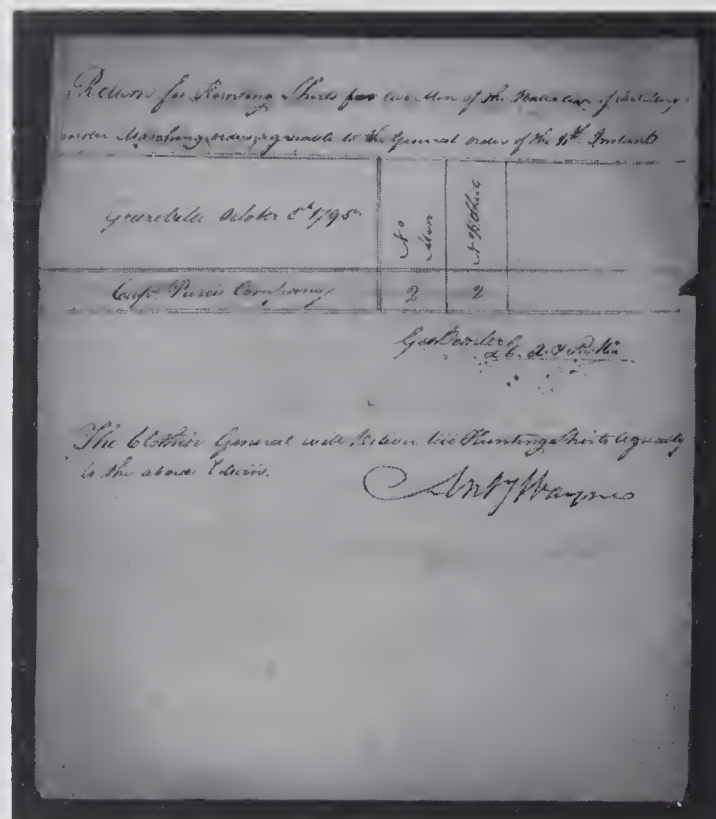 Return for Hunting Shirts for two Men of the of Artillery
under Marching orders agreable to the General order of the Instant
Greenville October 1795
No Men
N H Shirts
Capt. Company
2
2
Geo
The Clothier General will two Hunting Shirts agreeably
to the above
Anty Wayne